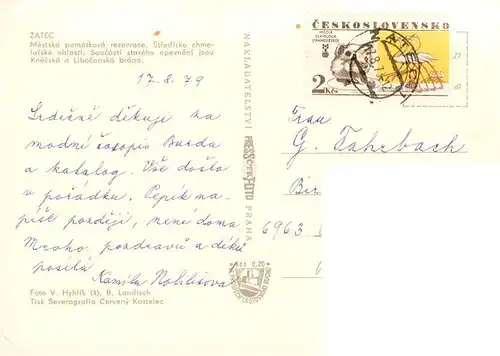 ŽATEC
Městská památková rezervace. Středisko chme-
lařské oblasti. Součástí starého opevnění jsou
Kněžská a Libočanská brána.
17. 8. 79
Srdečně děkuji za
modní časopis Burda
a katalog. Vše došlo
v pořádku. Pepík na-
píše později, není doma
Mnoho pozdravů a díků
posílá
Kamila
Foto V. Hyhlík (4), B. Landisch
Tisk Severografia Červený Kostelec
NAKLADATELSTVÍ PRESSFOTO PRAHA
Kčs 0,20
ČESKOSLOVENSKO
2 Kčs
Frau
G. Fahrbach
Bir
6963